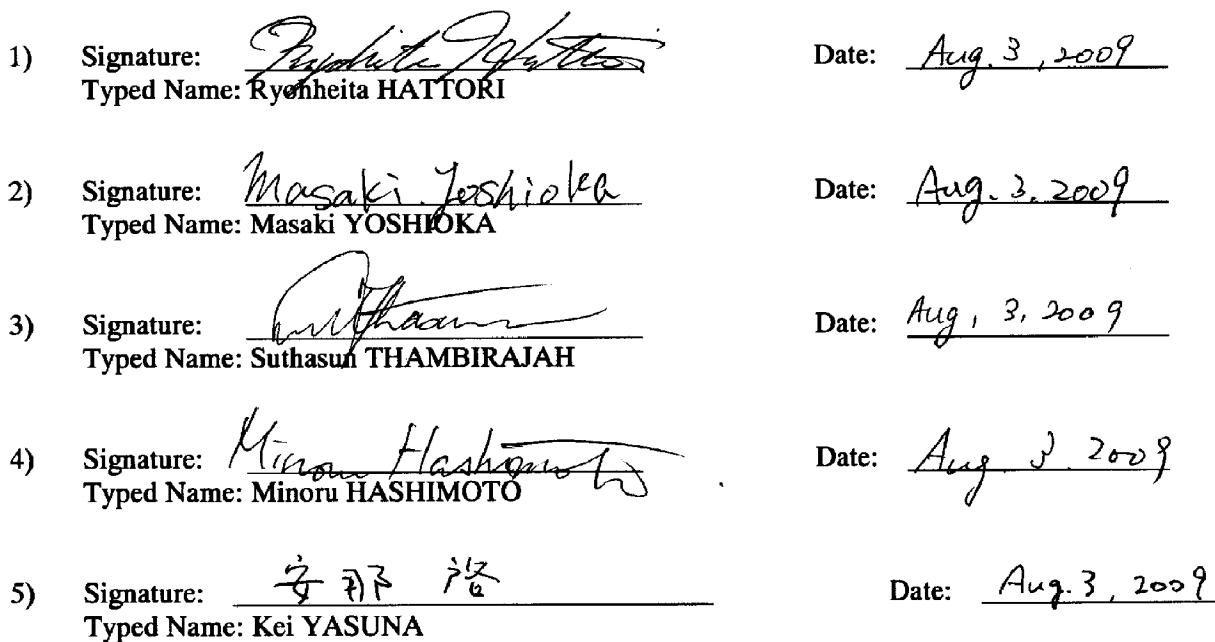 1) Signature: Ryohheita Hattori Date: Aug. 3, 2009
Typed Name: Ryohheita HATTORI
2) Signature: Masaki Yoshioka Date: Aug. 3. 2009
Typed Name: Masaki YOSHIOKA
3) Signature: Date: Aug, 3, 2009
Typed Name: Suthasun THAMBIRAJAH
4) Signature: Minoru Hashimoto Date: Aug 3. 2009
Typed Name: Minoru HASHIMOTO
5) Signature: 安那 Date: Aug. 3, 2009
Typed Name: Kei YASUNA